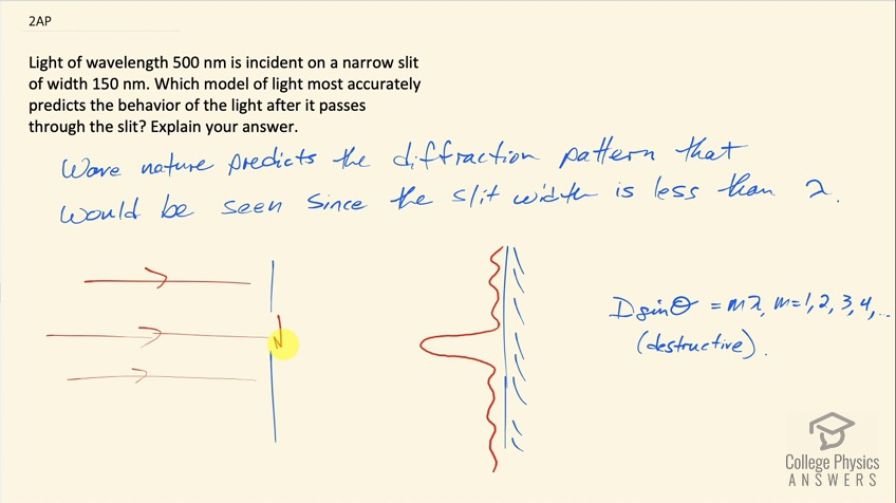 2AP
Light of wavelength 500 nm is incident on a narrow slit
of width 150 nm. Which model of light most accurately
predicts the behavior of the light after it passes
through the slit? Explain your answer.
Wave nature predicts the diffraction pattern that
would be seen since the slit width is less than λ.
D sinθ = mλ, m=1,2,3,4,...
(destructive).
College Physics
ANSWERS